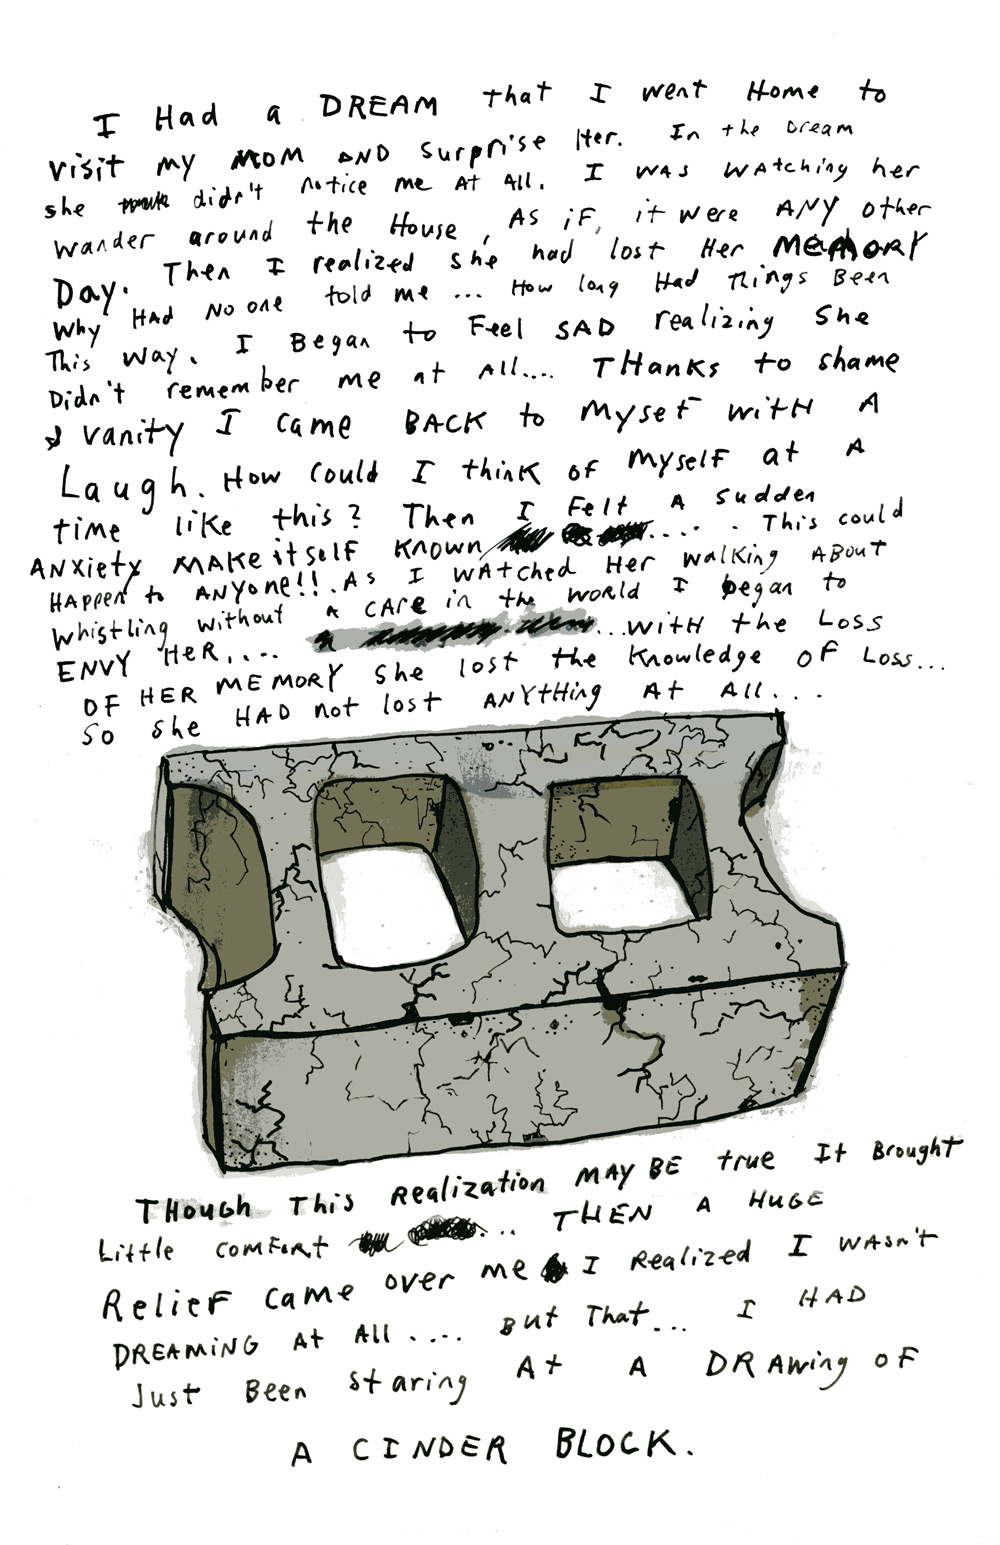 I Had a DREAM that I went Home to
visit my MOM AND surprise Her. In the Dream
she didn't notice me At All. I WAS WAtching her
wander around the House, As iF, it were ANY other
Day. Then I realized she had lost Her MEMORY
Why HAd No one told me ... How long Had things Been
This Way. I Began to Feel SAD realizing She
Didn't remember me at All.... THanks to shame
& vanity I came BACK to MyseF witH A
Laugh. How could I think of myself at A
time like this? Then I Felt A sudden
ANxiety MAKE itself known .... . This could
HAppen to ANYone!! As I WAtched Her walking ABout
Whistling without A CARE in the world I began to
ENVY HER.... ...witH the Loss
OF HER MEMORY She lost the Knowledge OF Loss...
So she HAD not lost ANYtHing At All...
THough This Realization MAY BE true It Brought
Little comFort ... THEN A HUGE
RelieF came over me I Realized I WASn't
DREAMiNG At All .... But That... I HAD
Just Been staring At A DRAwing OF
A CINDER BLOCK.